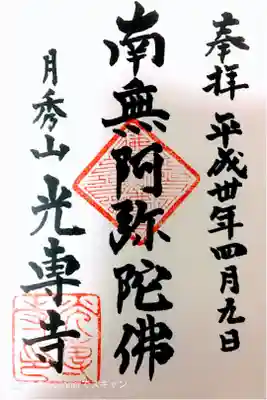 奉拝 平成卅年四月九日
南無阿弥陀佛
月秀山 光専寺